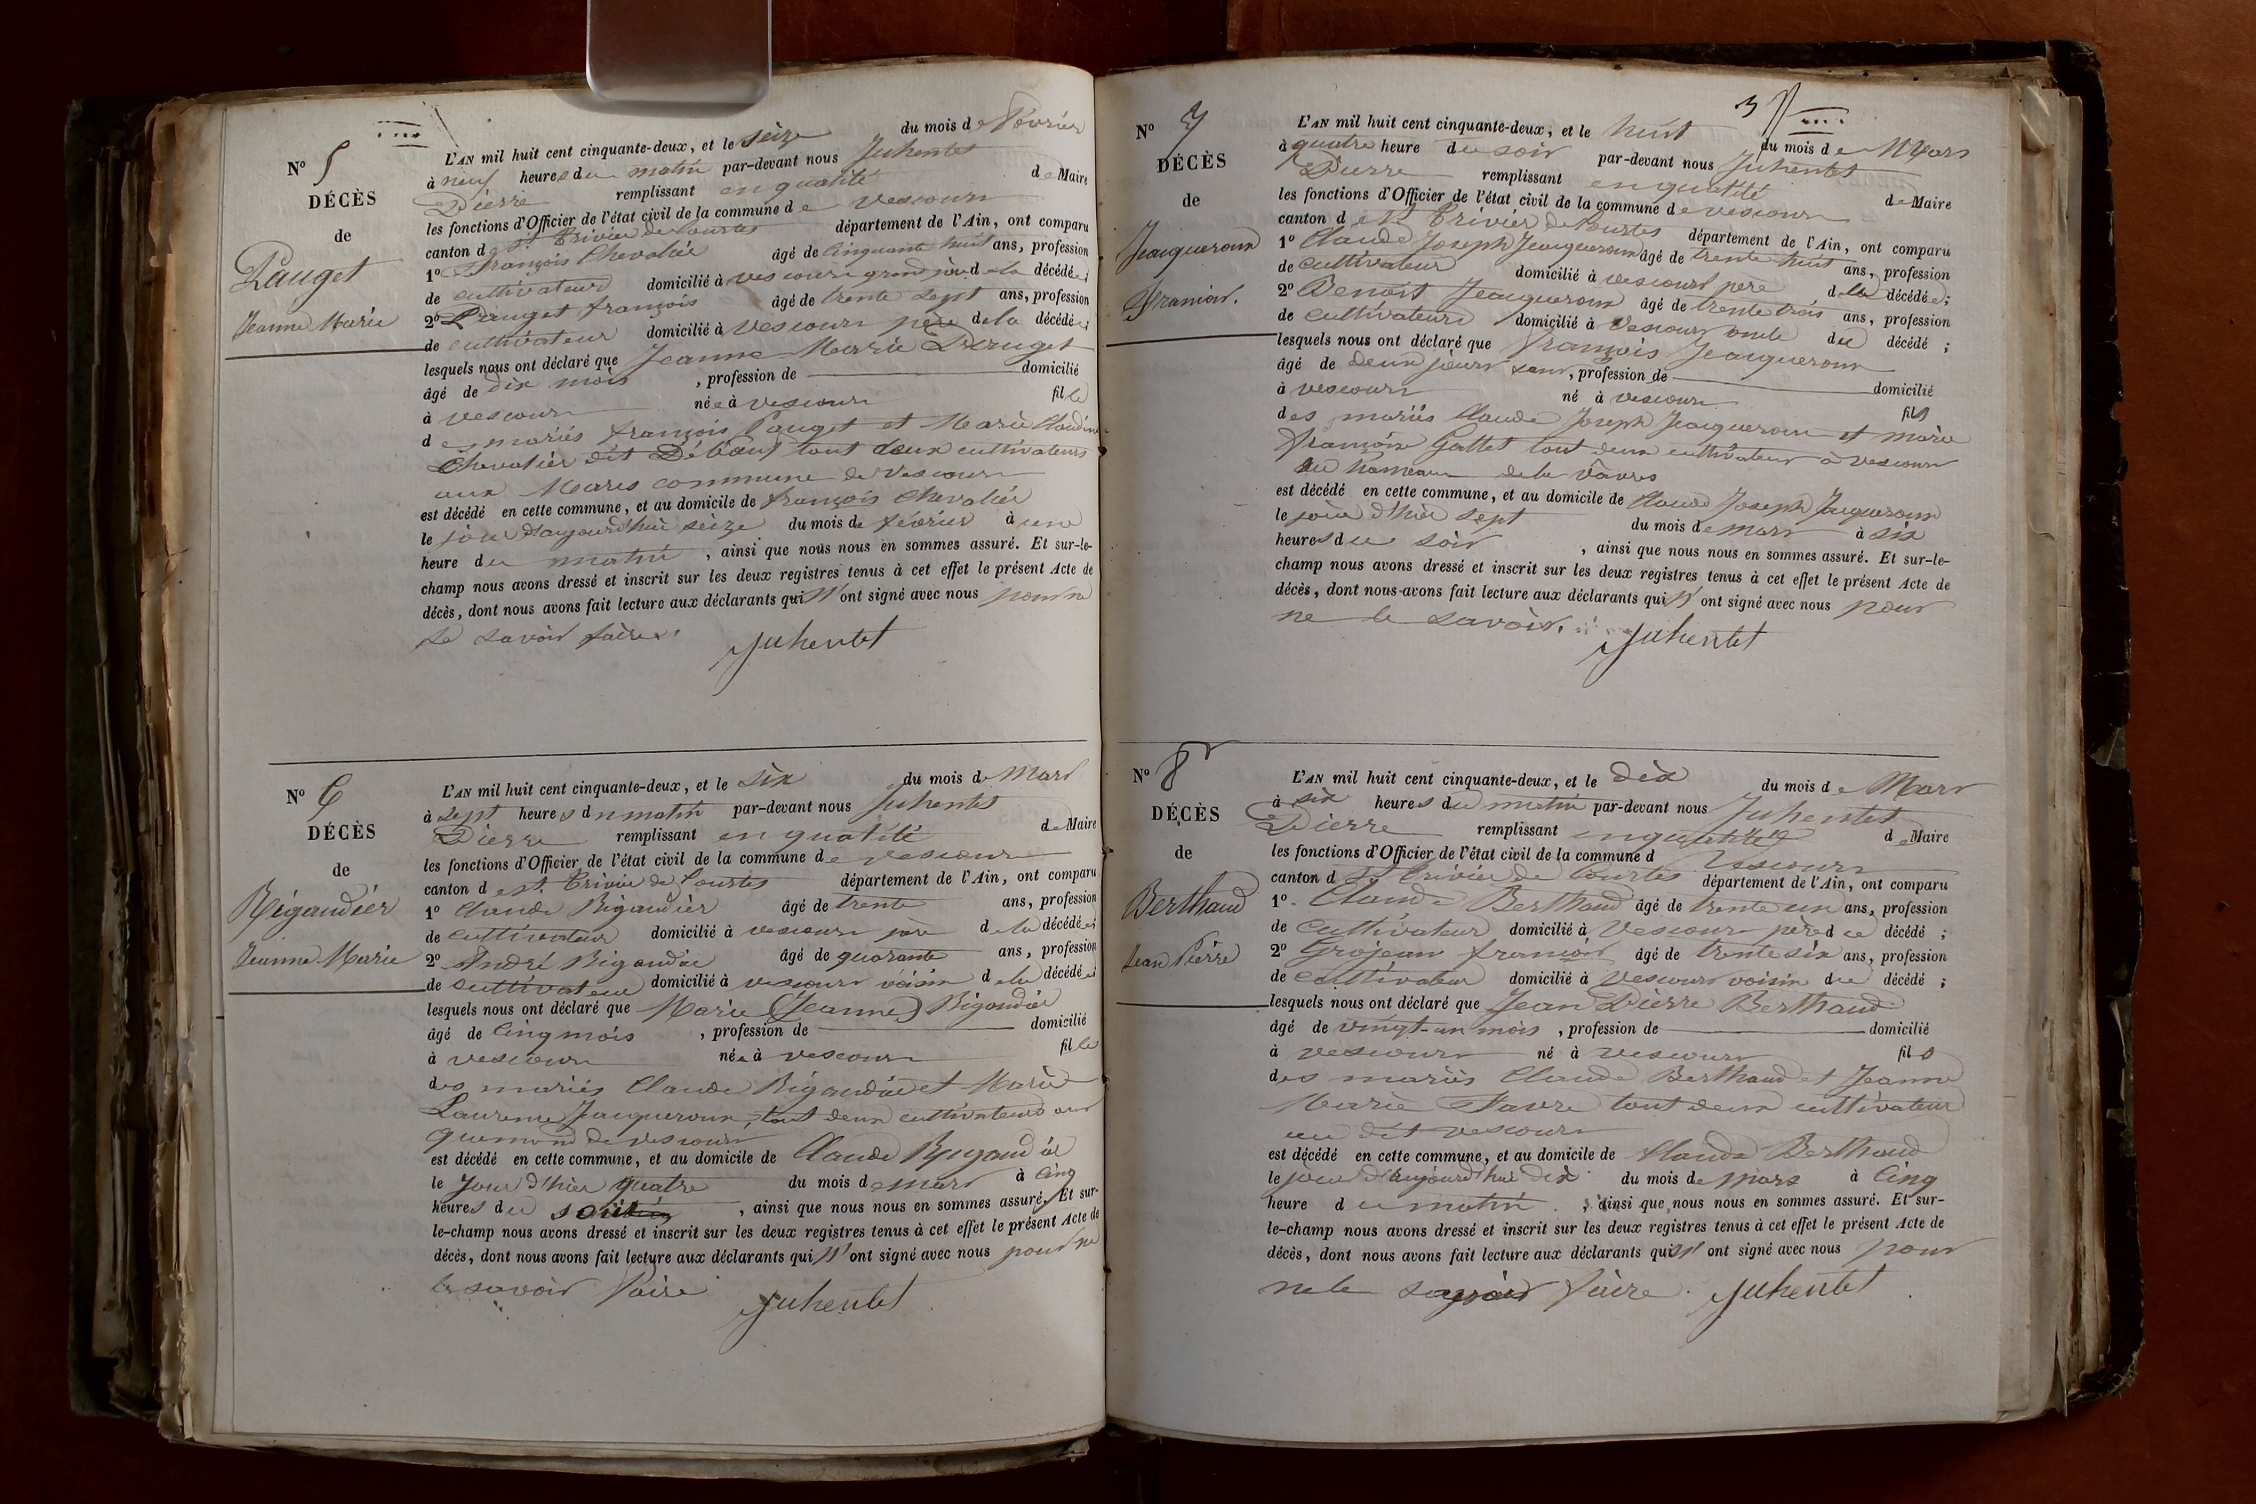 N° 5
DÉCÈS
de
Pauget
Jeanne Marie
L'AN mil huit cent cinquante-deux, et le seize du mois de Février
à neuf heures du matin par-devant nous Juhentet
Pierre remplissant en qualité de Maire
les fonctions d'Officier de l'état civil de la commune de vescours
canton de St Trivier de Courtes département de l'Ain, ont comparu
1° François Chevalier âgé de Cinquante huit ans, profession
de cultivateur domicilié à vescours grand père de la décédée;
2° Pauget françois âgé de trente sept ans, profession
de cultivateur domicilié à Vescours père de la décédée;
lesquels nous ont déclaré que Jeanne Marie Pauget
âgé de dix mois, profession de domicilié
à vescours née à vescours fille
des mariés françois Pauget et Marie Claudine
Chevalier dit Débœuf tout deux cultivateurs
aux Mares commune de Vescours
est décédé en cette commune, et au domicile de françois Chevalier
le jour d'aujourd'hui seize du mois de février à une
heure du matin, ainsi que nous nous en sommes assuré. Et sur-le-
champ nous avons dressé et inscrit sur les deux registres tenus à cet effet le présent Acte de
décès, dont nous avons fait lecture aux déclarants qui n'ont signé avec nous pour ne
le savoir faire.
Juhentet
N° 6
DÉCÈS
de
Rigaudier
Jeanne Marie
L'AN mil huit cent cinquante-deux, et le six du mois de Mars
à sept heures du matin par-devant nous Juhentet
Pierre remplissant en qualité de Maire
les fonctions d'Officier de l'état civil de la commune de vescours
canton de St. Trivier de Courtes département de l'Ain, ont comparu
1° Claude Rigaudier âgé de trente ans, profession
de cultivateur domicilié à vescours père de la décédée;
2° André Rigaudier âgé de quarante ans, profession
de cultivateur domicilié à vescours voisin de la décédée;
lesquels nous ont déclaré que Marie (Jeanne) Rigaudier
âgé de Cinq mois, profession de domicilié
à vescours née à vescours fille
des mariés Claude Rigaudier et Marie
Laurence Jacqueroux, tout deux cultivateurs
de vescours
est décédé en cette commune, et au domicile de Claude Rigaudier
le Jour d'hier quatre du mois de mars à Cinq
heures du soir, ainsi que nous nous en sommes assuré. Et sur-
le-champ nous avons dressé et inscrit sur les deux registres tenus à cet effet le présent Acte de
décès, dont nous avons fait lecture aux déclarants qui n'ont signé avec nous pour ne
le savoir faire
Juhentet
3
N° 7
DÉCÈS
de
Jeacqueroux
francois.
L'AN mil huit cent cinquante-deux, et le huit du mois de Mars
à quatre heure du soir par-devant nous Juhentet
Pierre remplissant en qualité de Maire
les fonctions d'Officier de l'état civil de la commune de vescours
canton de St Trivier de Courtes département de l'Ain, ont comparu
1° Claude Joseph Jeacqueroux âgé de trente huit ans, profession
de cultivateur domicilié à vescours père décédé;
2° Benoit Jeacqueroux âgé de trente trois ans, profession
de cultivateur domicilié à vescours oncle du décédé;
lesquels nous ont déclaré que françois Jeacqueroux
âgé de deux jours, profession de domicilié
à vescours né à vescours fils
des mariés Claude Joseph Jeacqueroux et marie
françoise Gallet tout deux cultivateur a vescours
au hameau de la Vavres
est décédé en cette commune, et au domicile de Claude Joseph Jacqueroux
le jour d'hier sept du mois de mars à six
heures du soir, ainsi que nous nous en sommes assuré. Et sur-le-
champ nous avons dressé et inscrit sur les deux registres tenus à cet effet le présent Acte de
décès, dont nous avons fait lecture aux déclarants qui n'ont signé avec nous pour
ne le savoir.
Juhentet
N° 8
DÉCÈS
de
Berthaud
Jean Pierre
L'AN mil huit cent cinquante-deux, et le dix du mois de Mars
à six heures du matin par-devant nous Juhentet
Pierre remplissant en qualité de Maire
les fonctions d'Officier de l'état civil de la commune d Vescours
canton d St Trivier de Courtes département de l'Ain, ont comparu
1° Claude Berthaud âgé de trente un ans, profession
de Cultivateur domicilié à Vescours père du décédé;
2° Grosjean francois âgé de trente six ans, profession
de cultivateur domicilié à Vescours voisin du décédé;
lesquels nous ont déclaré que Jean Pierre Berthaud
âgé de vingt-un mois, profession de domicilié
à vescours né à vescours fils
des mariés Claude Berthaud et Jeanne
Marie Favre tout deux cultivateur
au dit vescours
est décédé en cette commune, et au domicile de Claude Berthaud
le jour d'aujourd'hui dix du mois de mars à Cinq
heure du matin, ainsi que nous nous en sommes assuré. Et sur-
le-champ nous avons dressé et inscrit sur les deux registres tenus à cet effet le présent Acte de
décès, dont nous avons fait lecture aux déclarants qui n'ont signé avec nous pour
ne le savoir faire. Juhentet